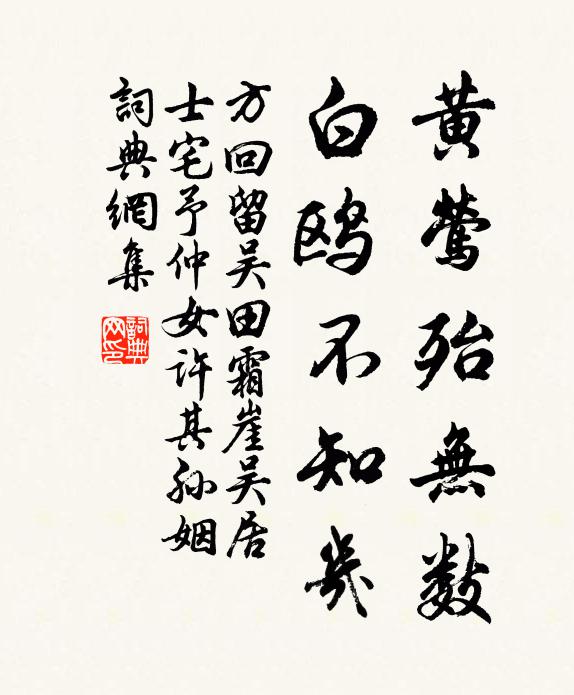 黄鶯殆無數
白鸥不知幾
方回留吴田霜崖吴居
士宅予仲女许其孫姻
詞典網集
詞典网印